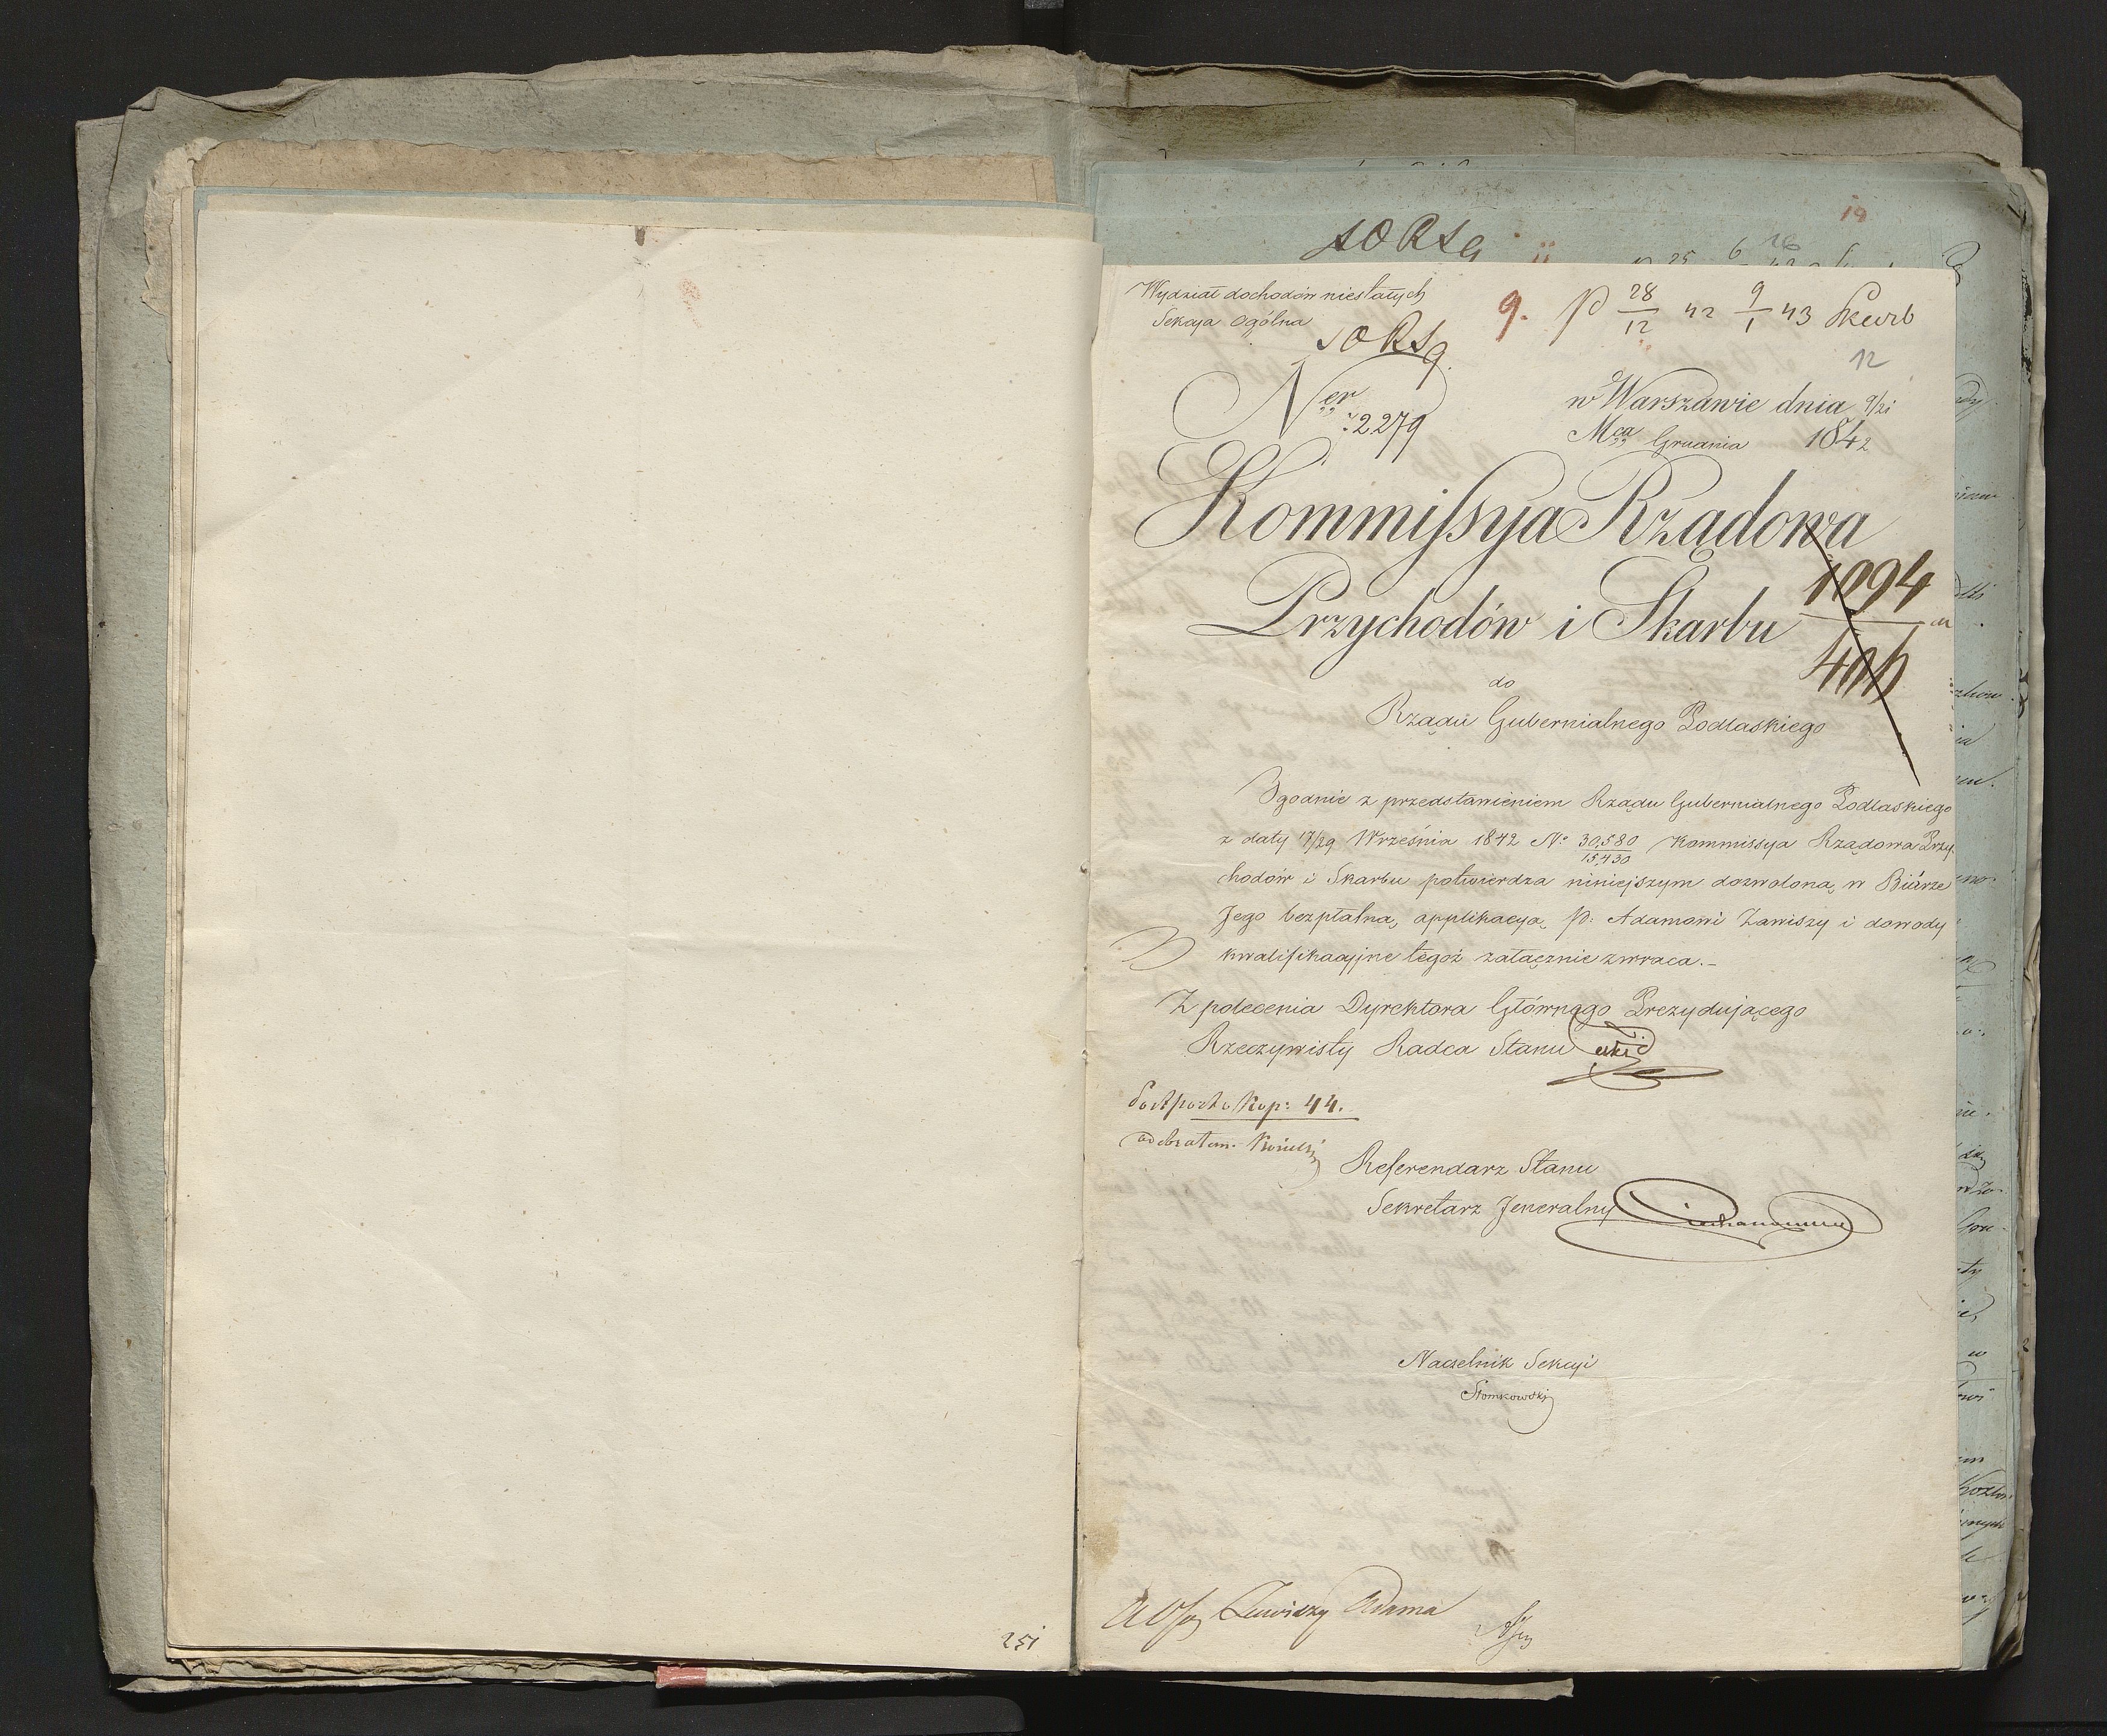 Wydział dochodów niestałych
Sekcya Ogólna
9. p 28/12 42 9/1 43 Skarb
12
Ner 92279
w Warszawie dnia 9/21
Mca Grudnia 1842
Kommissya Rządowa
Przychodów i Skarbu
1094
do
Rządu Gubernialnego Podlaskiego
Zgodnie z przedstawieniem Rządu Gubernialnego Podlaskiego
z daty 17/29 Września 1842 No 30,580/15,430 Kommissya Rządowa Przy-
chodów i Skarbu potwierdza niniejszym dozwoloną w Biórze
Jego bezpłatną applikacyą P: Adamowi Zawiszy i dowody
kwalifikacyjne tegoż załącznie zwraca.-
Z polecenia Dyrektora Głównego Prezydującego
Rzeczywisty Radca Stanu
Portporto Kop: 44.
odebrałem
Referendarz Stanu
Sekretarz Jeneralny
Naczelnik Sekcyi
Słomkowski
Zawiszy Adama
251